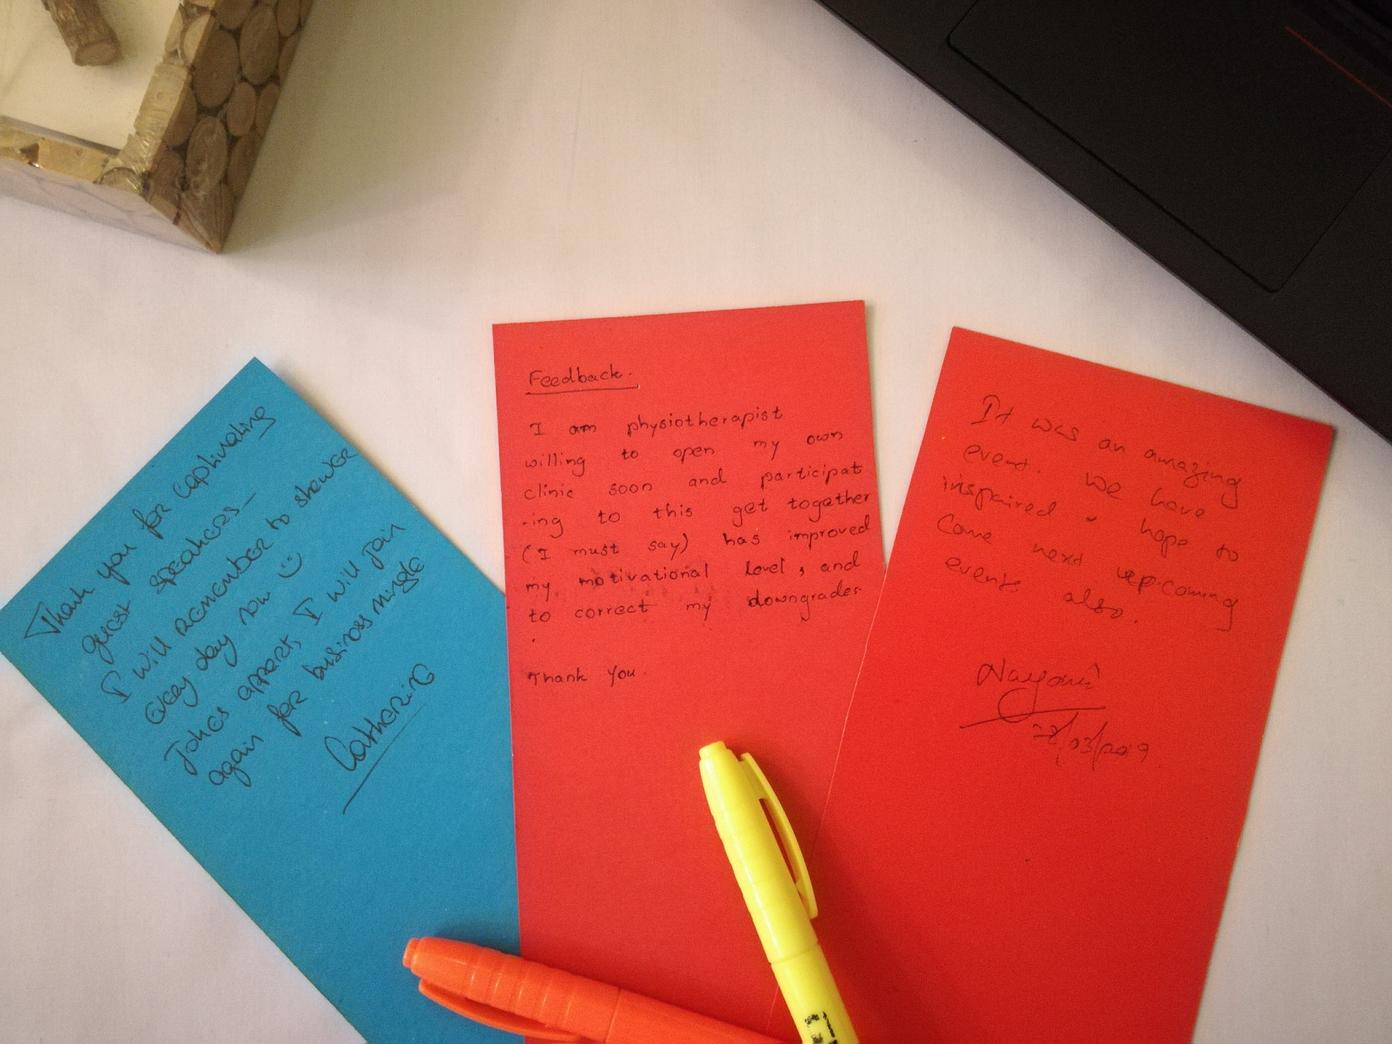 Thank you for captivating
guest speakers -
I will remember to shower
every day now :)
Jokes appart, I will join
again for business mingle
Catherine
Feedback.
I am physiotherapist
willing to open my own
clinic soon and participat
-ing to this get together
(I must say) has improved
my motivational level, and
to correct my downgrades.
Thank you.
It was an amazing
event. We have
inspaired & hope to
come next upcoming
events also.
Nayomi
/03/2019